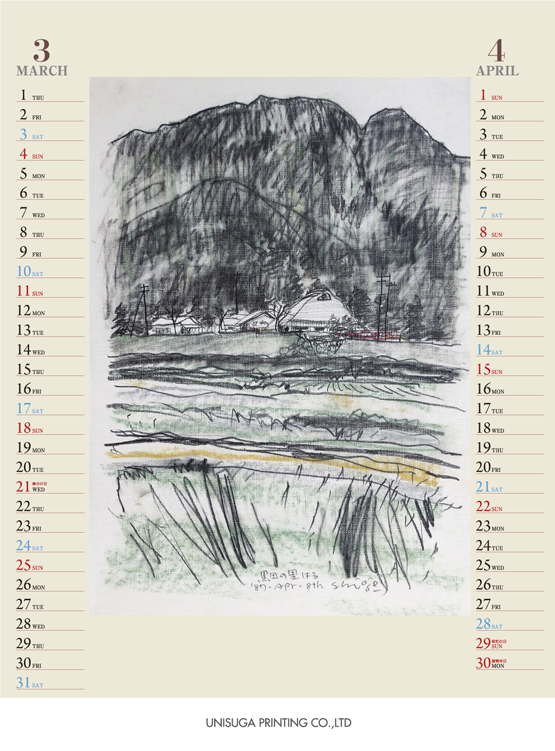 3
MARCH
1 THU
2 FRI
3 SAT
4 SUN
5 MON
6 TUE
7 WED
8 THU
9 FRI
10 SAT
11 SUN
12 MON
13 TUE
14 WED
15 THU
16 FRI
17 SAT
18 SUN
19 MON
20 TUE
21 春分の日 WED
22 THU
23 FRI
24 SAT
25 SUN
26 MON
27 TUE
28 WED
29 THU
30 FRI
31 SAT
4
APRIL
1 SUN
2 MON
3 TUE
4 WED
5 THU
6 FRI
7 SAT
8 SUN
9 MON
10 TUE
11 WED
12 THU
13 FRI
14 SAT
15 SUN
16 MON
17 TUE
18 WED
19 THU
20 FRI
21 SAT
22 SUN
23 MON
24 TUE
25 WED
26 THU
27 FRI
28 SAT
29 昭和の日 SUN
30 振替休日 MON
の里はる
'87. Apr. 8th
UNISUGA PRINTING CO.,LTD